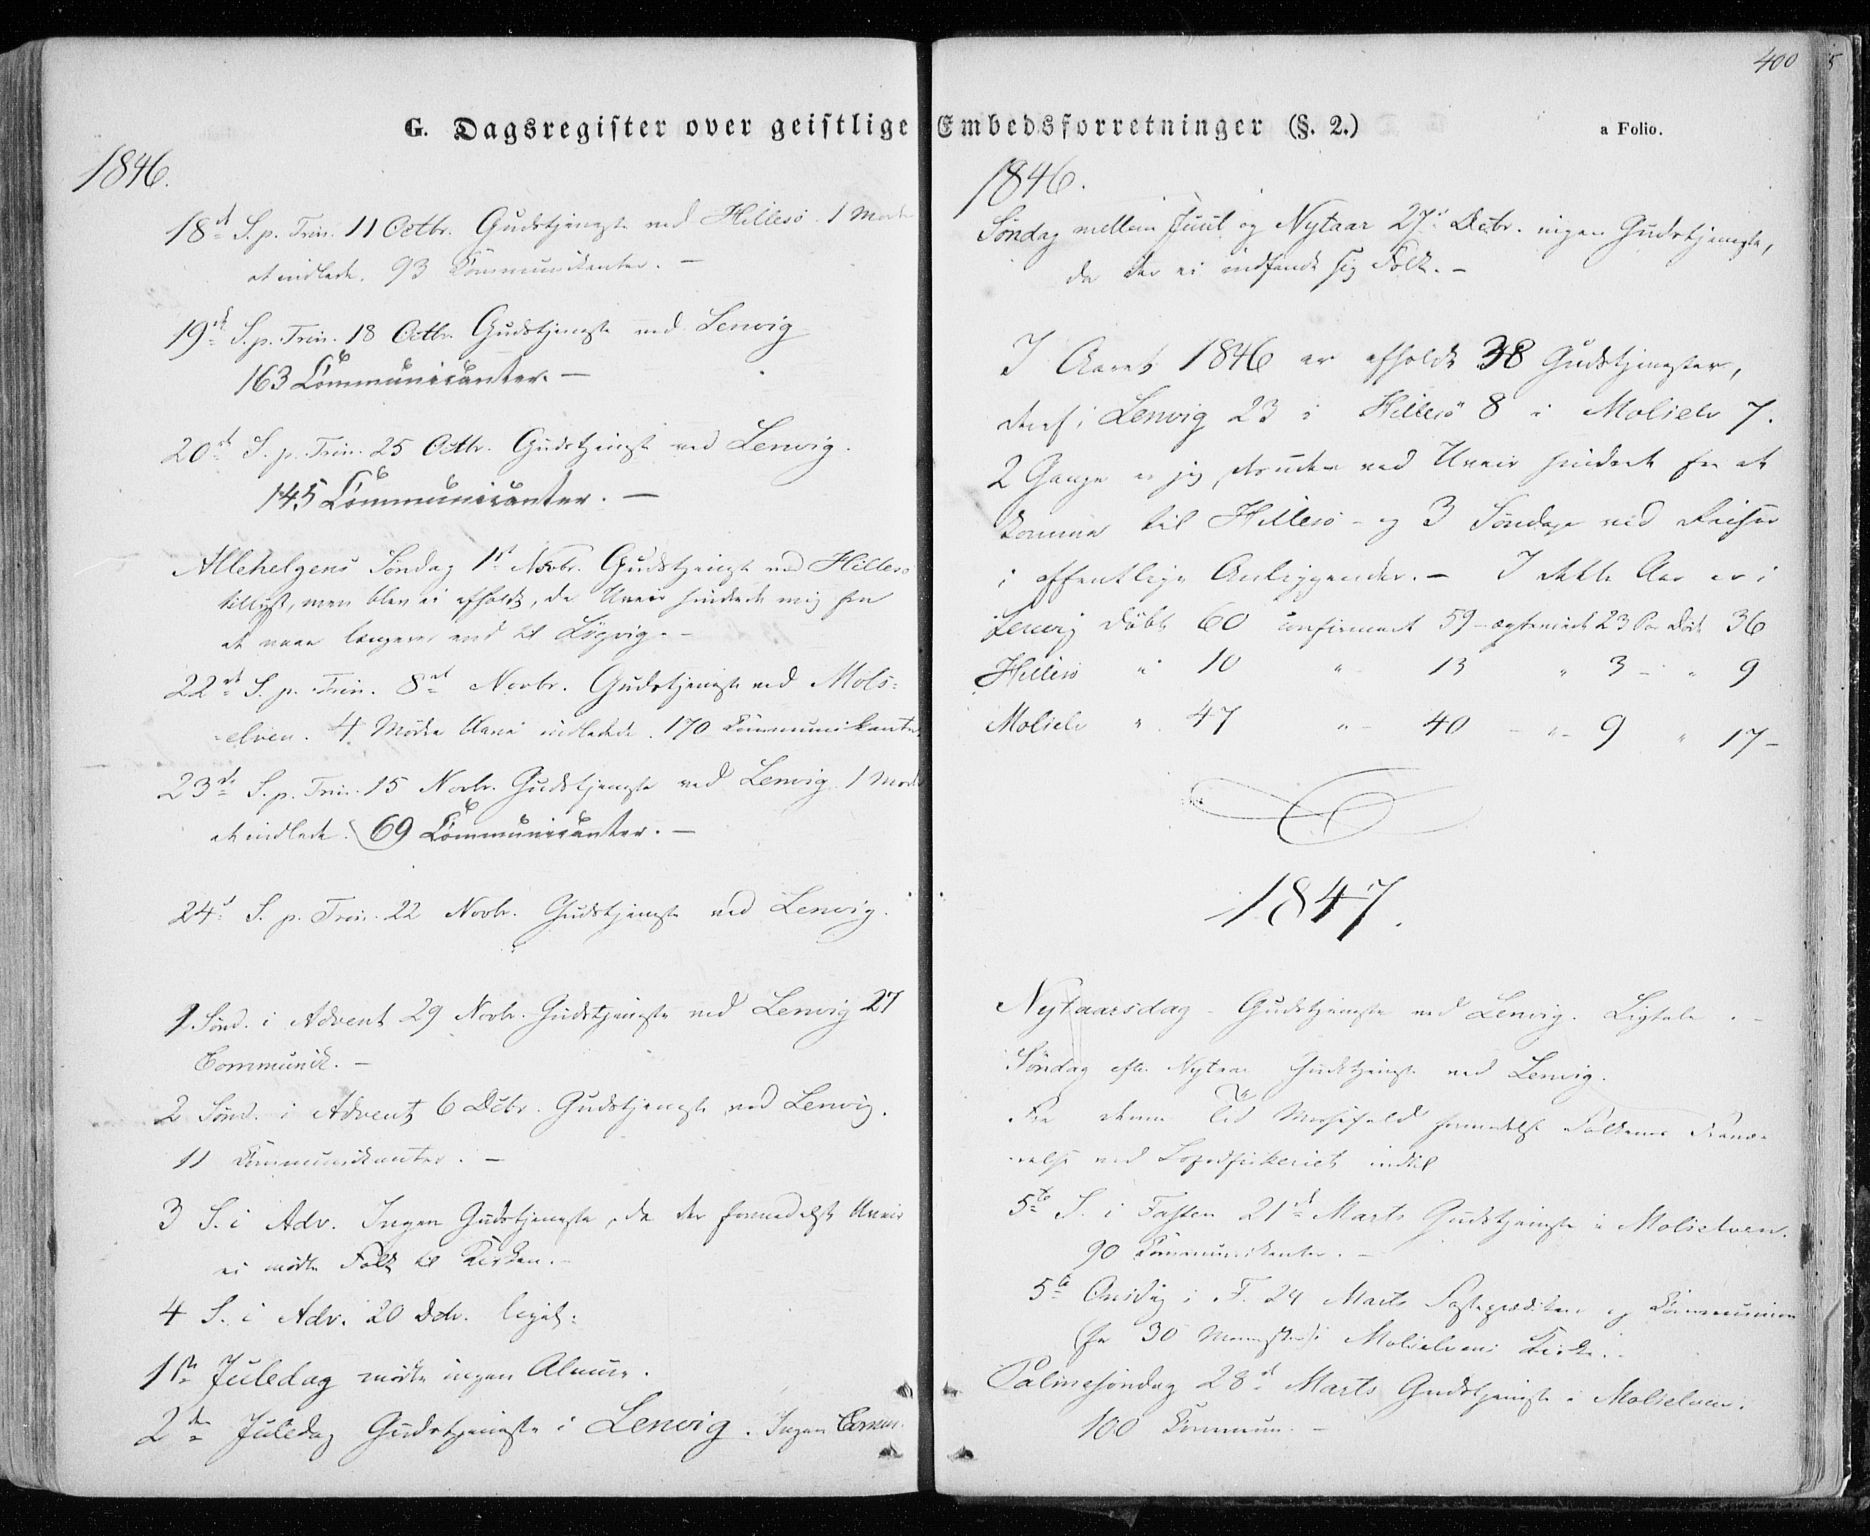 400
G. Dagsregister over geistlige Embedsforretninger (§. 2.)
a Folio.
1846.
18de S. p. Trin. 11 Octbr. Gudstjeneste ved Hillesö. 1 Moder
at indlede. 93 Communikanter. –
19de S. p. Trin. 18 Octbr. Gudstjeneste ved Lenvig
163 Communicanter. –
20de S. p. Trin. 25 Octbr. Gudstjeneste ved Lenvig.
145 Communicanter. –
Allehelgens Söndag 1ste Novbr. Gudstjeneste ved Hillesö
tillyst, men blev ei afholdt, da Uveir hindrede mig fra
at naae længere end til Lögvig. –
22de S. p. Trin. 8de Novbr. Gudstjeneste ved Mols=
elven. 4 Mödre bleve indledede. 170 Communikanter
23de S. p. Trin. 15 Novbr. Gudstjeneste ved Lenvig. 1 Moder
at indlede. 69 Communicanter. –
24d S. p. Trin. 22 Novbr. Gudstjeneste ved Lenvig.
1 Sönd. i Advent 29 Novbr. Gudstjeneste ved Lenvig 27
Communik. –
2 Sönd. i Advent 6 Dcbr. Gudstjeneste ved Lenvig.
11 Communikanter. –
3 S. i Adv. Ingen Gudstjeneste, da der formedelst Uveir
ei mödte Folk til Kirken. –
4 S. i Adv. 20 Dcbr. ligel:
1ste Juledag mödte ingen Almue.
2den Juledag Gudstjeneste i Lenvig. Ingen Comm.
1846.
Söndag mellem Juul og Nytaar 27de Dcbr. ingen Gudstjeneste,
da der ei indfandt sig Folk. –
I Aaret 1846 er afholdt 38 Gudstjenester,
deraf i Lenvig 23 i Hillesö 8 i Molselv 7.
2 Gange er jeg desuden ved Uveir hindret fra at
komme til Hillesö – og 3 Söndage ved Reiser
i offentlige Anliggender. – I dette Aar er i
Lenvig döbt 60 confirmert 59 – ægteviede 23 Par döde 36
Hillesö " 10 " 13 " 3 – " 9
Molselv " 47 " – 40 – " – 9 " 17 –
1847.
Nytaarsdag – Gudstjeneste ved Lenvig. Ligtale. –
Söndag efter Nytaar Gudstjeneste ved Lenvig.
Fra denne Tid Messefald formedelst Folkenes Fravæ=
relse ved Lofodfiskeriet indtil
5te S. i Fasten 21de Marts Gudstjeneste i Molselven.
90 Communikanter. –
5te Onsdag i F. 24 Marts Fasteprædiken og Communion
(for 30 Mennesker) i Molselvens Kirke. –
Palmesöndag 28de Marts Gudstjeneste i Molselven.
100 Commun. –